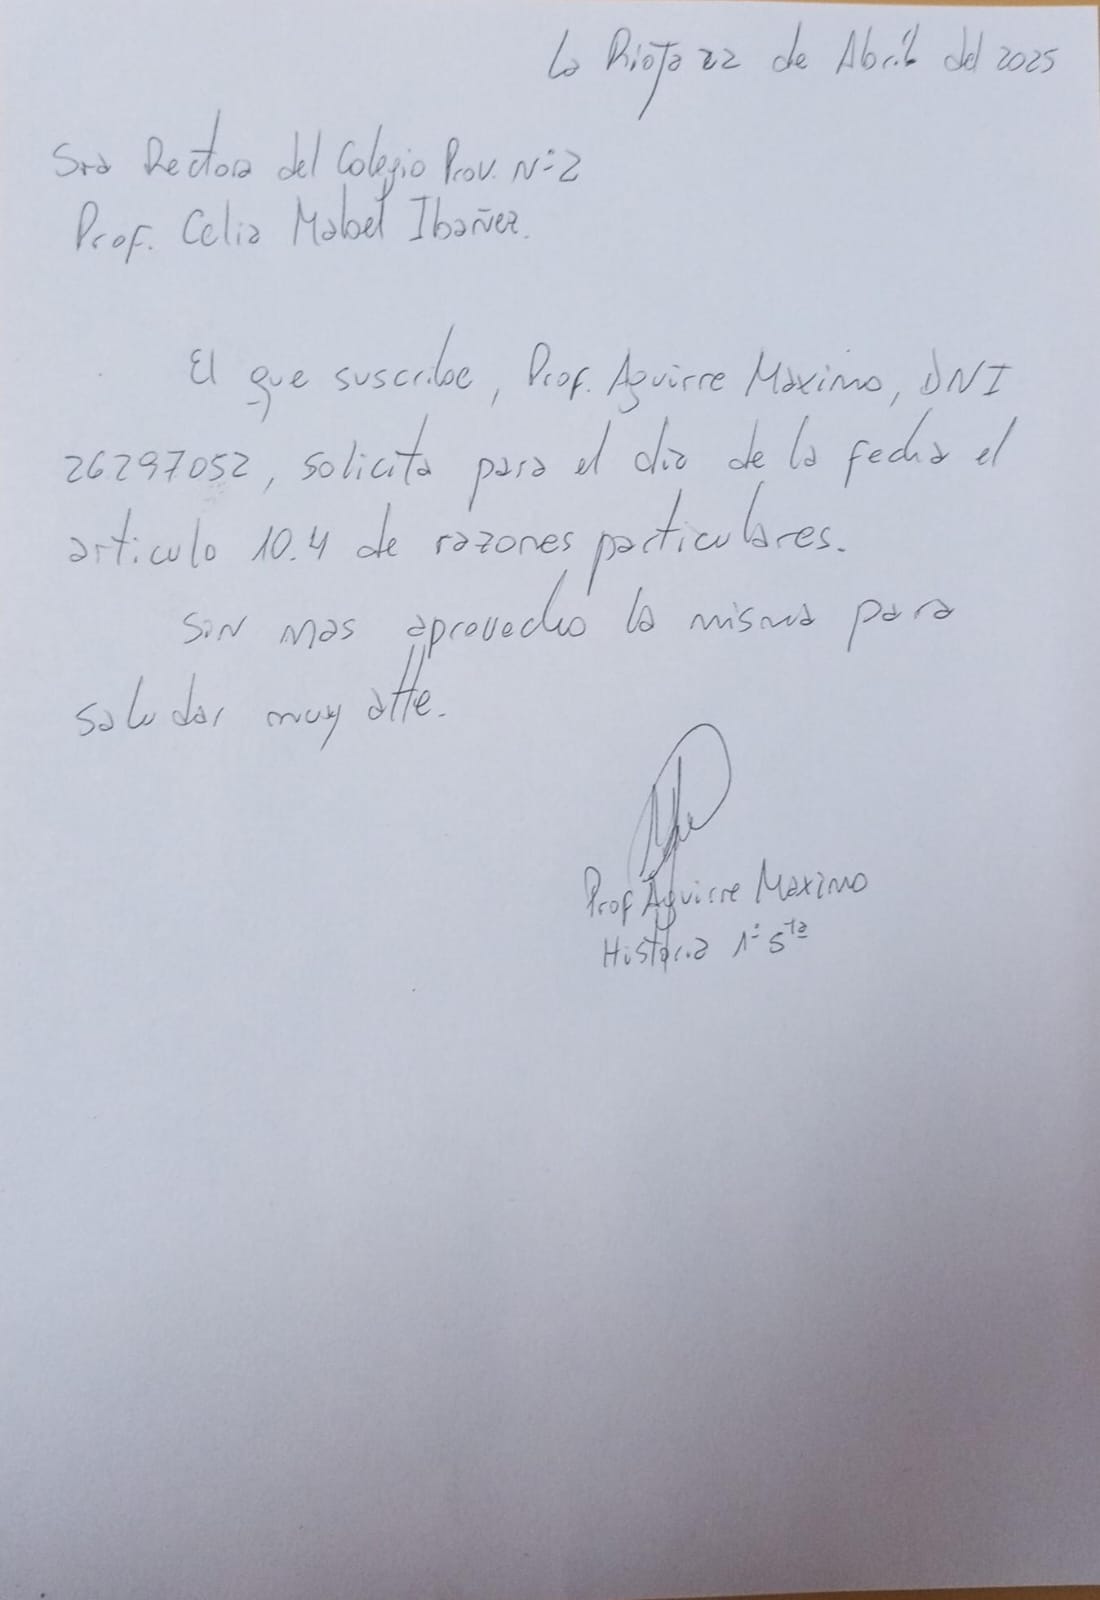 La Rioja 22 de Abril del 2025
Sra Rectora del Colegio Prov. Nº 2
Prof. Celia Mabel Ibañez.
El que suscribe, Prof. Aguirre Maximo, DNI
26297052, solicita para el dia de la fecha el
articulo 10.4 de razones particulares.
Sin mas aprovecho la misma para
saludar muy atte.
Prof Aguirre Maximo
Historia 1º 5ta